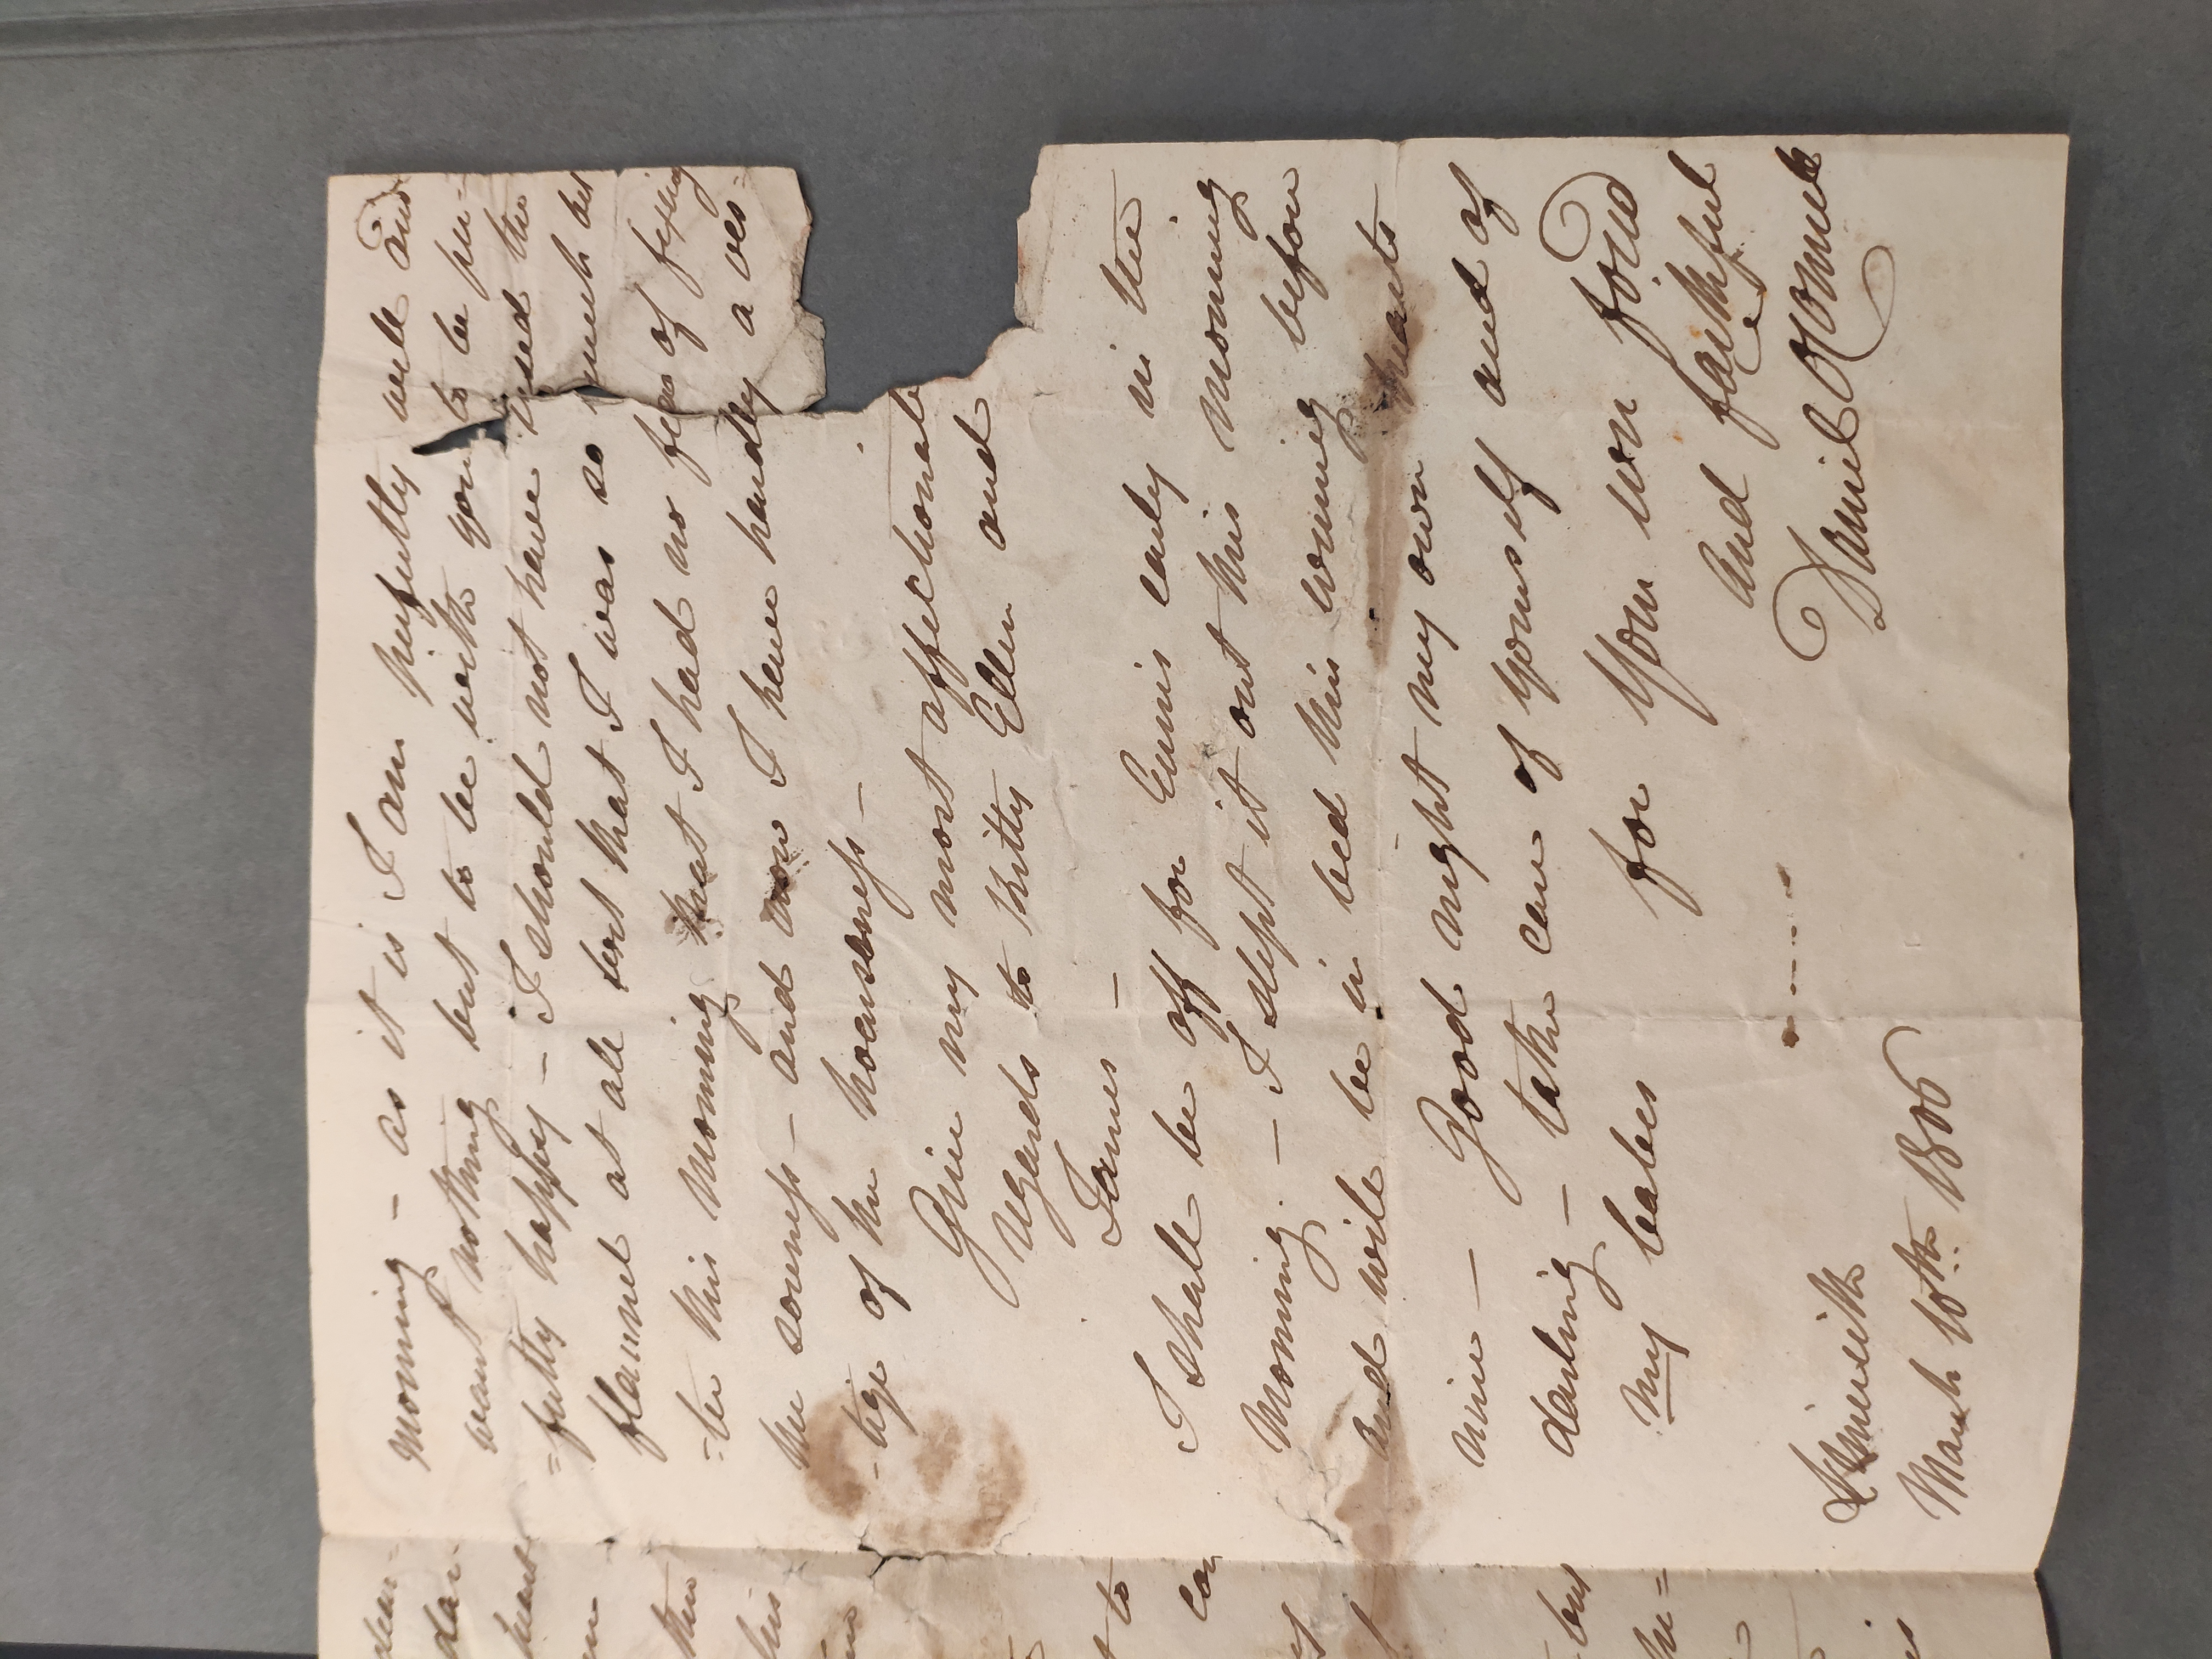 morning – as it is I am perfectly well and
want nothing but to be with you to be per-
=fectly happy – I should not have used the
flannel at all but that I was so much bet
=ter this morning that I had no fear of feeling
the soreness – and now I have hardly a ves=
-tige of the hoarseness –
Give my most affectionate
regards to Kitty Ellen and
James –
I shall be off for Ennis early in the
Morning. – I slept it out this morning
And will be in bed this evening before
nine – Good night my own heart's
darling – take care of yourself and of
my babes for your own fond
and faithful
Daniel O'Connell
Limerick
March 10th. 1806
dar
heart
this
his
to
but